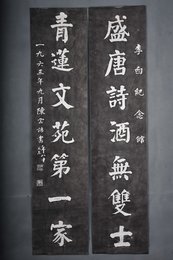 李白紀念館
盛唐詩酒無雙士
青蓮文苑第一家
一九六三年九月陳雲誥書